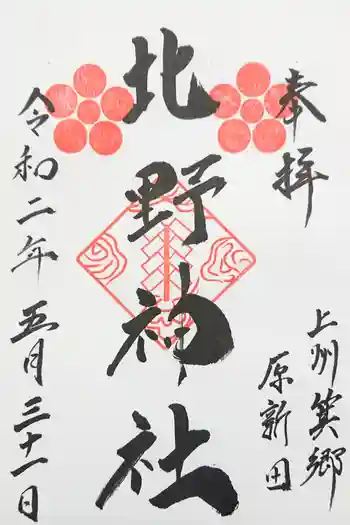 奉拝
上州箕郷
原新田
北野神社
令和二年五月三十一日